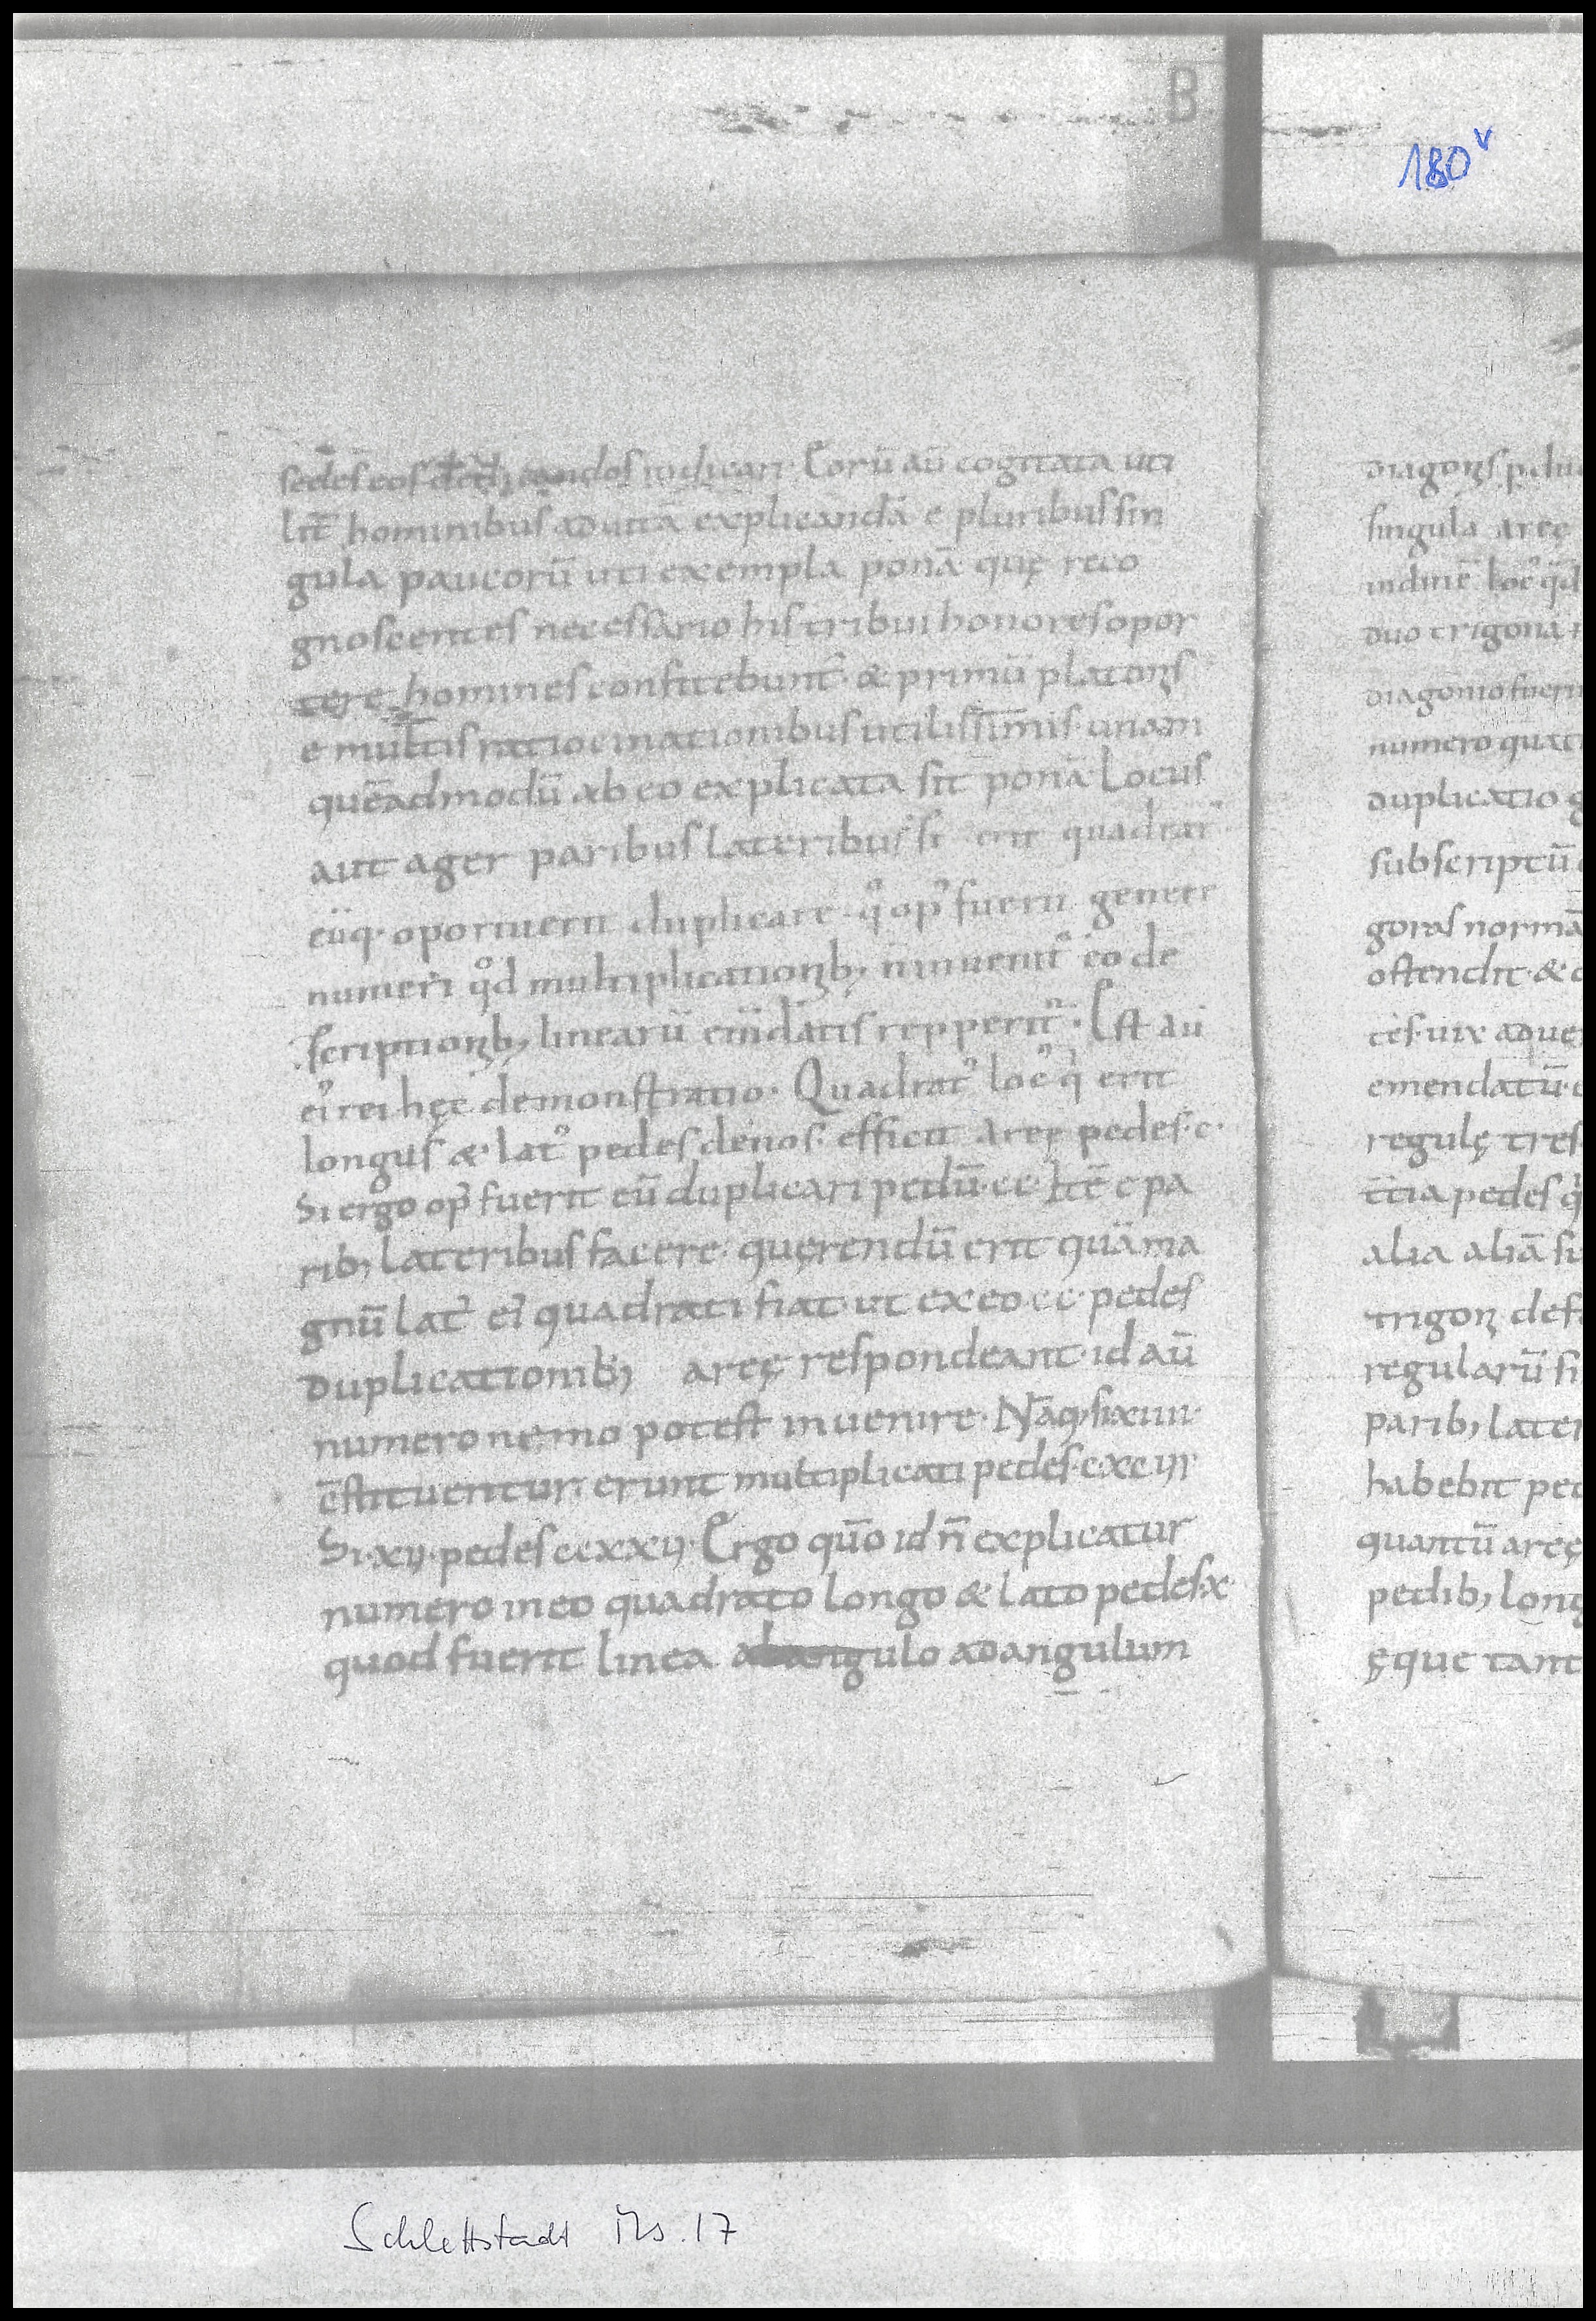 B
180v
sedes eos dedicandos iudicari. Eorū aū cogitata uti
lit̄ hominibus ad uitā explicandā e pluribus sin
gula paucorū uti exempla ponā quę reco
gnoscentes necessario his tribui honores opor
tere homines confitebunt̄. & primū platonis
e multis ratiocinationibus utilissimis unam
quēadmodū ab eo explicata sit ponā. Locus
aut ager paribus lateribus si erit quadrat᷒
eūq. oportuerit duplicare. qᷣ op᷒ fuerit genere
numeri qᷣd multiplicationib; n̄ inuenit᷒ eo de
scriptionib; linearū ēndatis repperit᷒. Est aū
ei᷒ rei hęc demonstratio. Quadrat᷒ loc᷒ qͥ erit
longus & lat᷒ pedes denos. efficit areę pedes .c.
Si ergo op᷒ fuerit eū duplicari pedū .cc. Itē e pa
rib; lateribus facere. quęrendū erit quā ma
gnū lat᷒ ei᷒ quadrati fiat ut ex eo .cc. pedes
duplicationib; areę respondeant. id aū
numero nemo potest inuenire. Nāq; si xiiii.
c̄stituentur. erunt multiplicati pedes .cxcvi
Si .xv. pedes ccxxv. Ergo qūo id n̄ explicatur
numero in eo quadrato longo & lato pedes .x.
quod fuerit linea ab angulo ad angulum
diagonis p du
singula areę
indinē loc᷒ qd
duo trigona
diagonio fuerin
numero quat
duplicatio g
subscriptū
goras normā
ostendit. & q
ces. uix ad ue
emendatū.
regulę tres
t̄tia pedes q
alia aliā
trigoni def
regularū si
parib; later
habebit ped
quantū areę
pedib; long
ęque tant
Schlettstadt Ms. 17